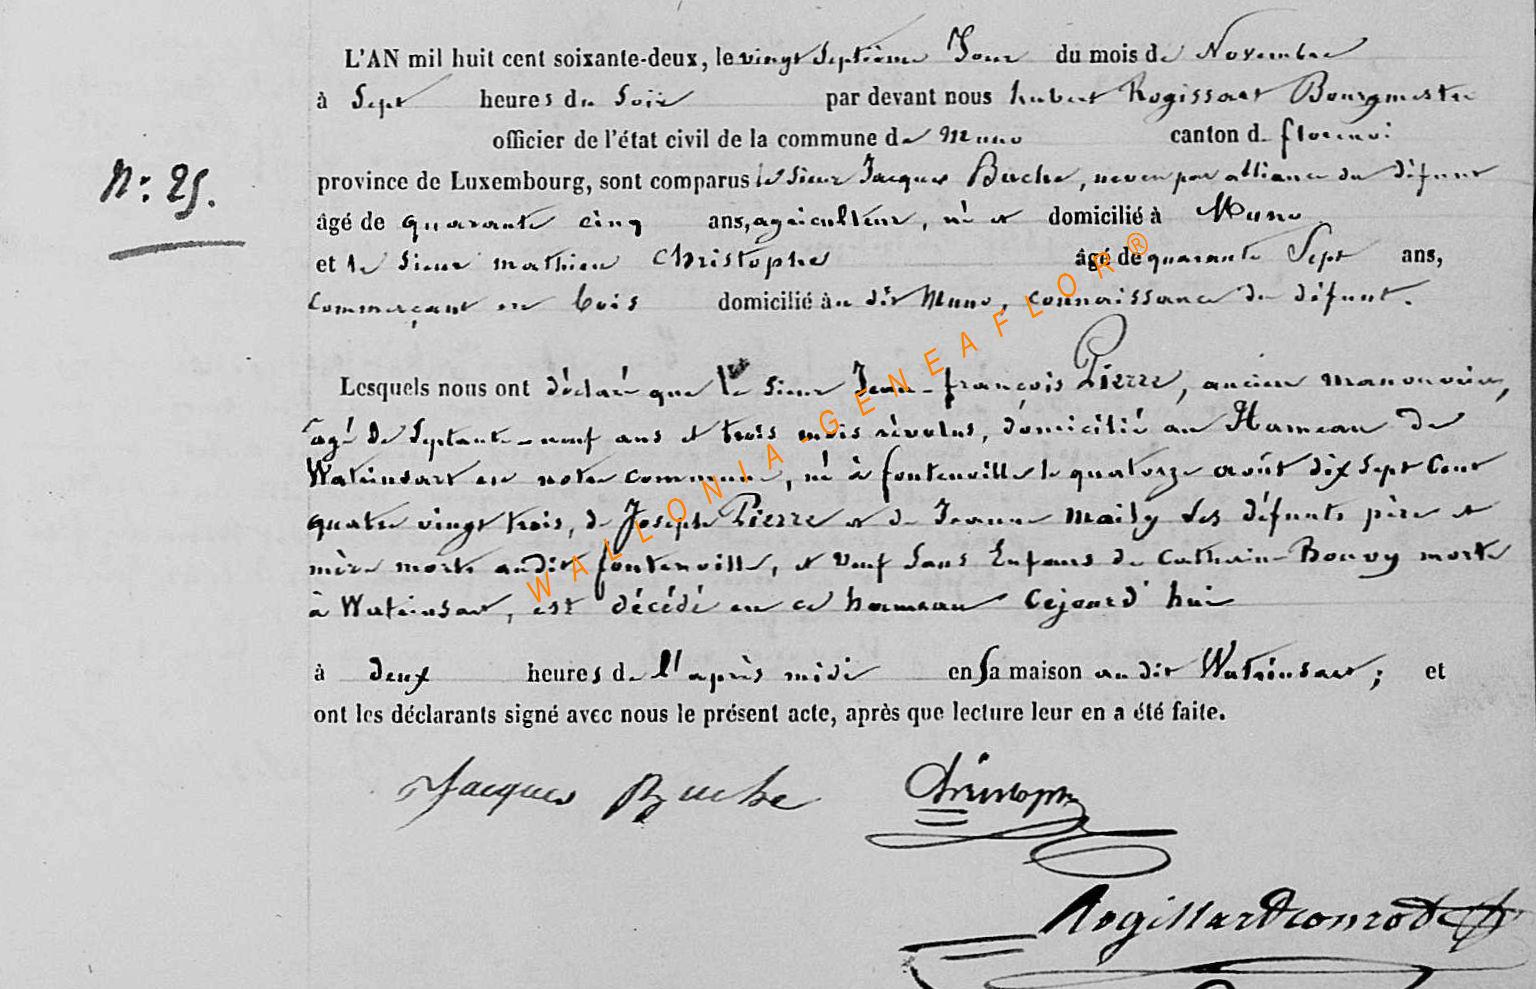 L'AN mil huit cent soixante-deux, le vingt Septième Jour du mois de Novembre
à Sept heures du Soir par devant nous hubert Rogissart Bourgmestre
officier de l'état civil de la commune de Muno canton de florenvi:
N: 25.
province de Luxembourg, sont comparus le Sieur Jacques Buche, neveu par alliance du défunt
âgé de quarante cinq ans, agriculteur, né et domicilié à Muno
et le Sieur mathieu Christophe âgé de quarante Sept ans,
Commerçant en bois domicilié au dit Muno, connaissance du défunt.
Lesquels nous ont déclaré que le Sieur Jean-françois Pierre, ancien manouvrier,
âgé de Septante-neuf ans et trois mois révolus, domicilié au Hameau de
Watrinsart en notre commune, né à fontenoille le quatorze août dix Sept Cent
quatre vingt trois, de Joseph Pierre et de Jeanne Maily les défunts père et
mère morts audit fontenoille, et veuf Sans Enfans de Catherine Bouvy morte
à Watrinsart, est décédé en ce hameau Cejourd'hui
à deux heures de l'après midi en Sa maison audit Watrinsart; et
ont les déclarants signé avec nous le présent acte, après que lecture leur en a été faite.
Jacques Buche Christophe
Rogissart
WALLONIA-GENEAFLOR®